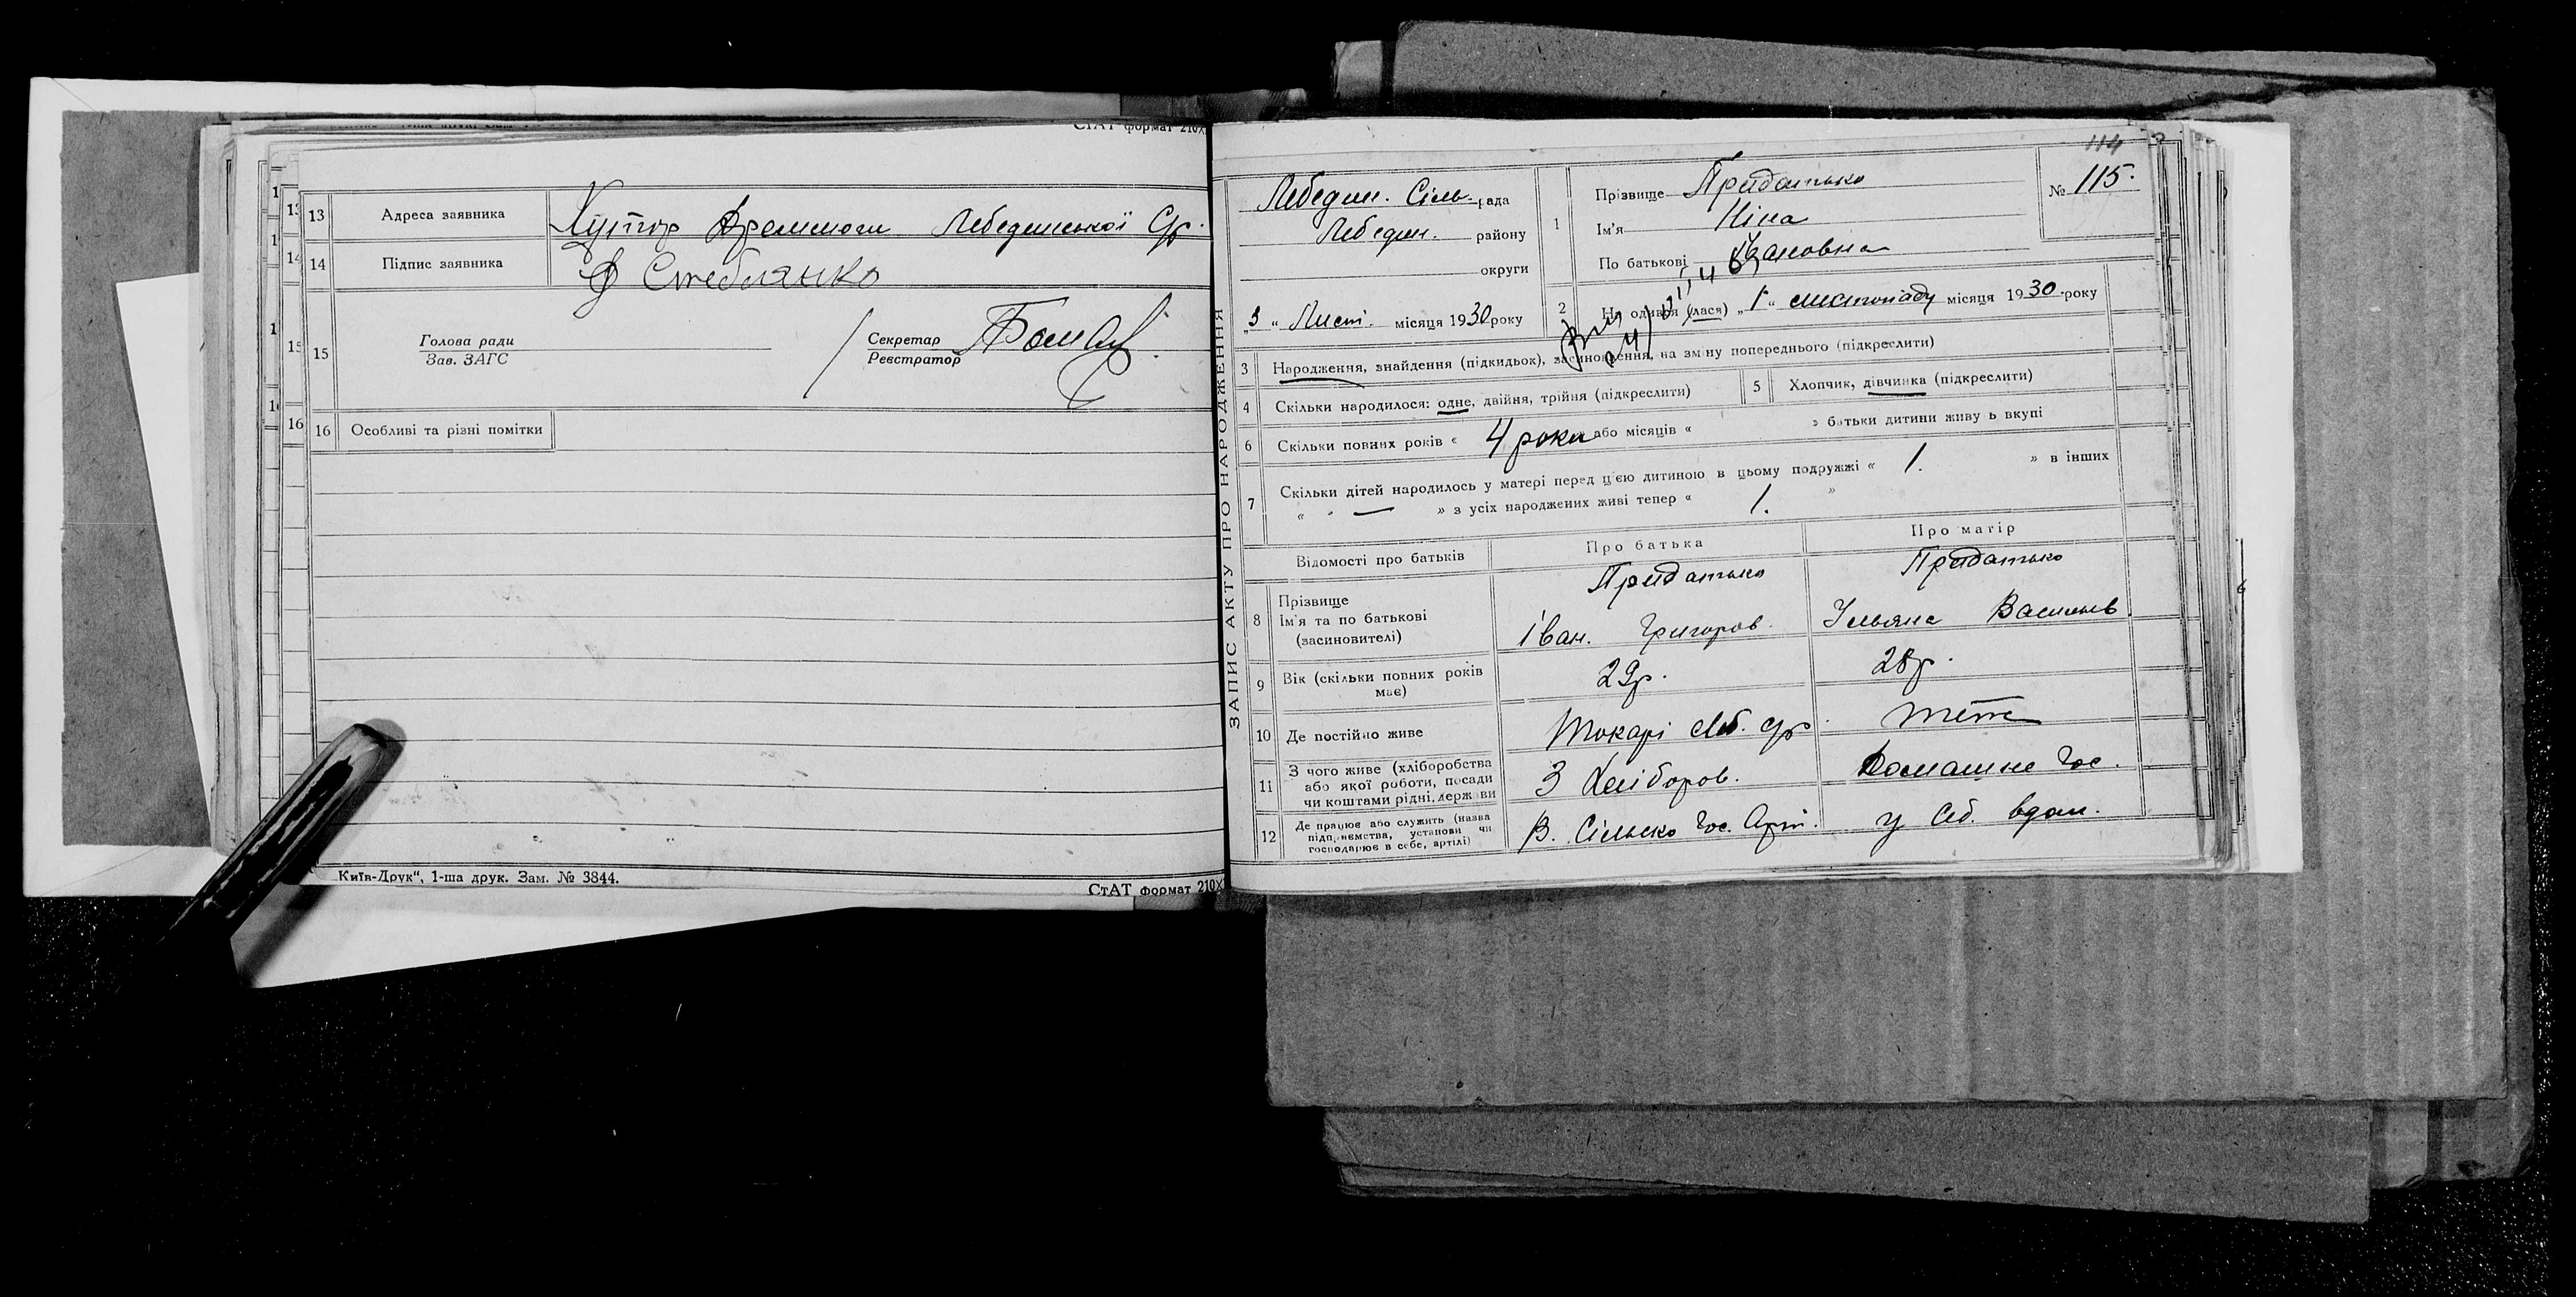 СтАТ формат 210X
13 Адреса заявника Хутор Лебединської Ср.
14 Підпис заявника Стеблянко
15 Голова ради
Зав. ЗАГС
Секретар
Реєстратор
16 Особливі та різні помітки
Київ-Друк“, 1-ша друк. Зам. № 3844.
СтАТ формат 210X
ЗАПИС АКТУ ПРО НАРОДЖЕННЯ
114
№ 115.
Лебедин. Сіль рада
Лебедин. району
округи
„3“ Лист. місяця 1930 року
1 Прізвище Придатько
Ім'я Ніна
По батькові Івановна
2 На одився (лася) „1“ листопаду місяця 1930 року
3 Народження, знайдення (підкидьок), засиновлення, на зміну попереднього (підкреслити)
4 Скільки народилося: одне, двійня, трійня (підкреслити)
5 Хлопчик, дівчинка (підкреслити)
6 Скільки повних років « 4 роки або місяців « » батьки дитини живу ь вкупі
7 Скільки дітей народилось у матері перед цією дитиною в цьому подружжі « 1. » в інших
« — » з усіх народжених живі тепер « 1. »
Відомості про батьків Про батька Про матір
8 Прізвище Придатько Придатько
Ім'я та по батькові Іван. Григоров. Ульяна Васильев
(засиновителі)
9 Вік (скільки повних років має) 29р. 28р.
10 Де постійно живе Токарі Леб. ср. теж
11 З чого живе (хліборобства
або якої роботи, посади
чи коштами рідні, держави З хліборов. Домашне гос.
12 Де працює або служить (назва
підприємства, установи чи
господарює в себе, артілі) В. Сільско гос. Арт. у себ. вдом.